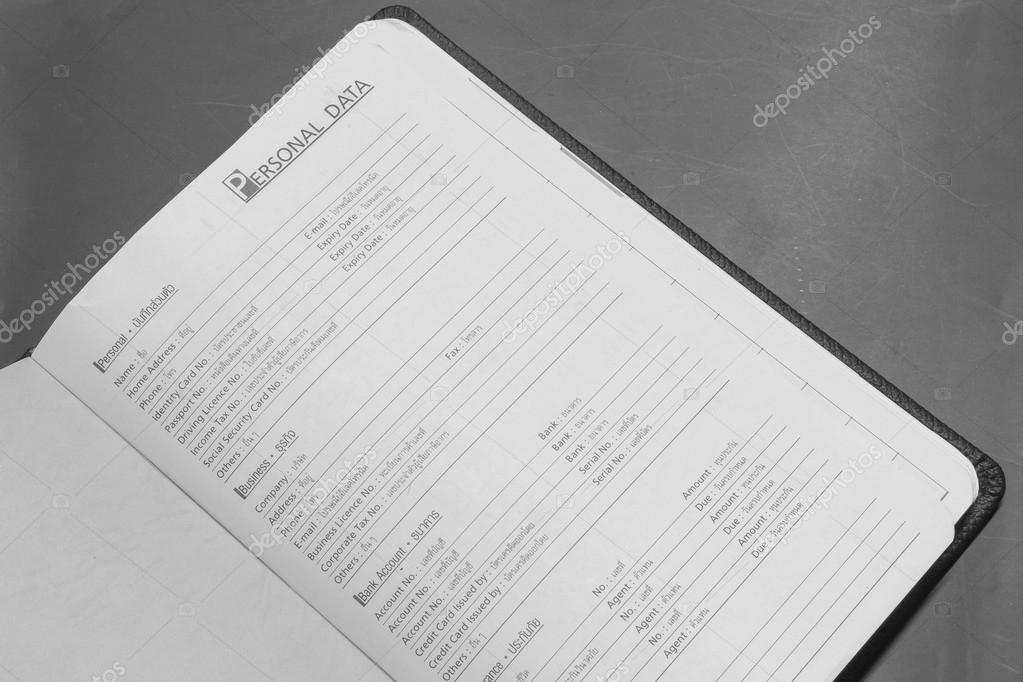 PERSONAL DATA
Personal • บันทึกส่วนตัว
Name : ชื่อ
Home Address : ที่อยู่
Phone : โทร E-mail : ไปรษณีย์อิเลคโทรนิค
Identity Card No. : บัตรประชาชนเลขที่ Expiry Date : วันหมดอายุ
Passport No. : หนังสือเดินทางเลขที่ Expiry Date : วันหมดอายุ
Driving Licence No. : ใบขับขี่เลขที่ Expiry Date : วันหมดอายุ
Income Tax No. : เลขประจำตัวผู้เสียภาษีอากร
Social Security Card No. : บัตรประกันสังคมเลขที่
Others : อื่น ๆ
Business • ธุรกิจ
Company : บริษัท
Address : ที่อยู่
Phone : โทร Fax : โทรสาร
E-mail : ไปรษณีย์อิเลคโทรนิค
Business Licence No. : ทะเบียนการค้าเลขที่
Corporate Tax No. : เลขประจำตัวผู้เสียภาษีอากร
Others : อื่น ๆ
Bank Account • ธนาคาร
Account No. : เลขที่บัญชี Bank : ธนาคาร
Account No. : เลขที่บัญชี Bank : ธนาคาร
Account No. : เลขที่บัญชี Bank : ธนาคาร
Credit Card Issued by : บัตรเครดิตออกโดย Serial No. : เลขที่บัตร
Credit Card Issued by : บัตรเครดิตออกโดย Serial No. : เลขที่บัตร
Others : อื่น ๆ
rance • ประกันภัย
No. : เลขที่ Amount : ทุนประกัน
Agent : ตัวแทน Due : วันครบกำหนด
No. : เลขที่ Amount : ทุนประกัน
Agent : ตัวแทน Due : วันครบกำหนด
No. : เลขที่ Amount : ทุนประกัน
Agent : ตัวแทน Due : วันครบกำหนด
depositphotos
depositphotos
depositphotos
depositphotos
depositphotos
depositphotos